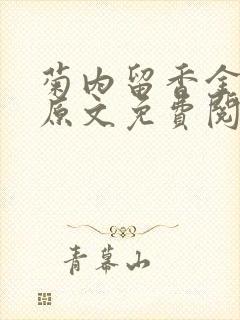 菊内留香全
原文免费阅
青幕山